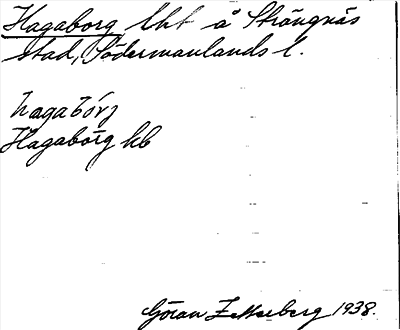 Hagaborg lht å Strängnäs
stad, Södermanlands l.
hagabórj
Hagaborg kb
Göran Zetterberg 1938.